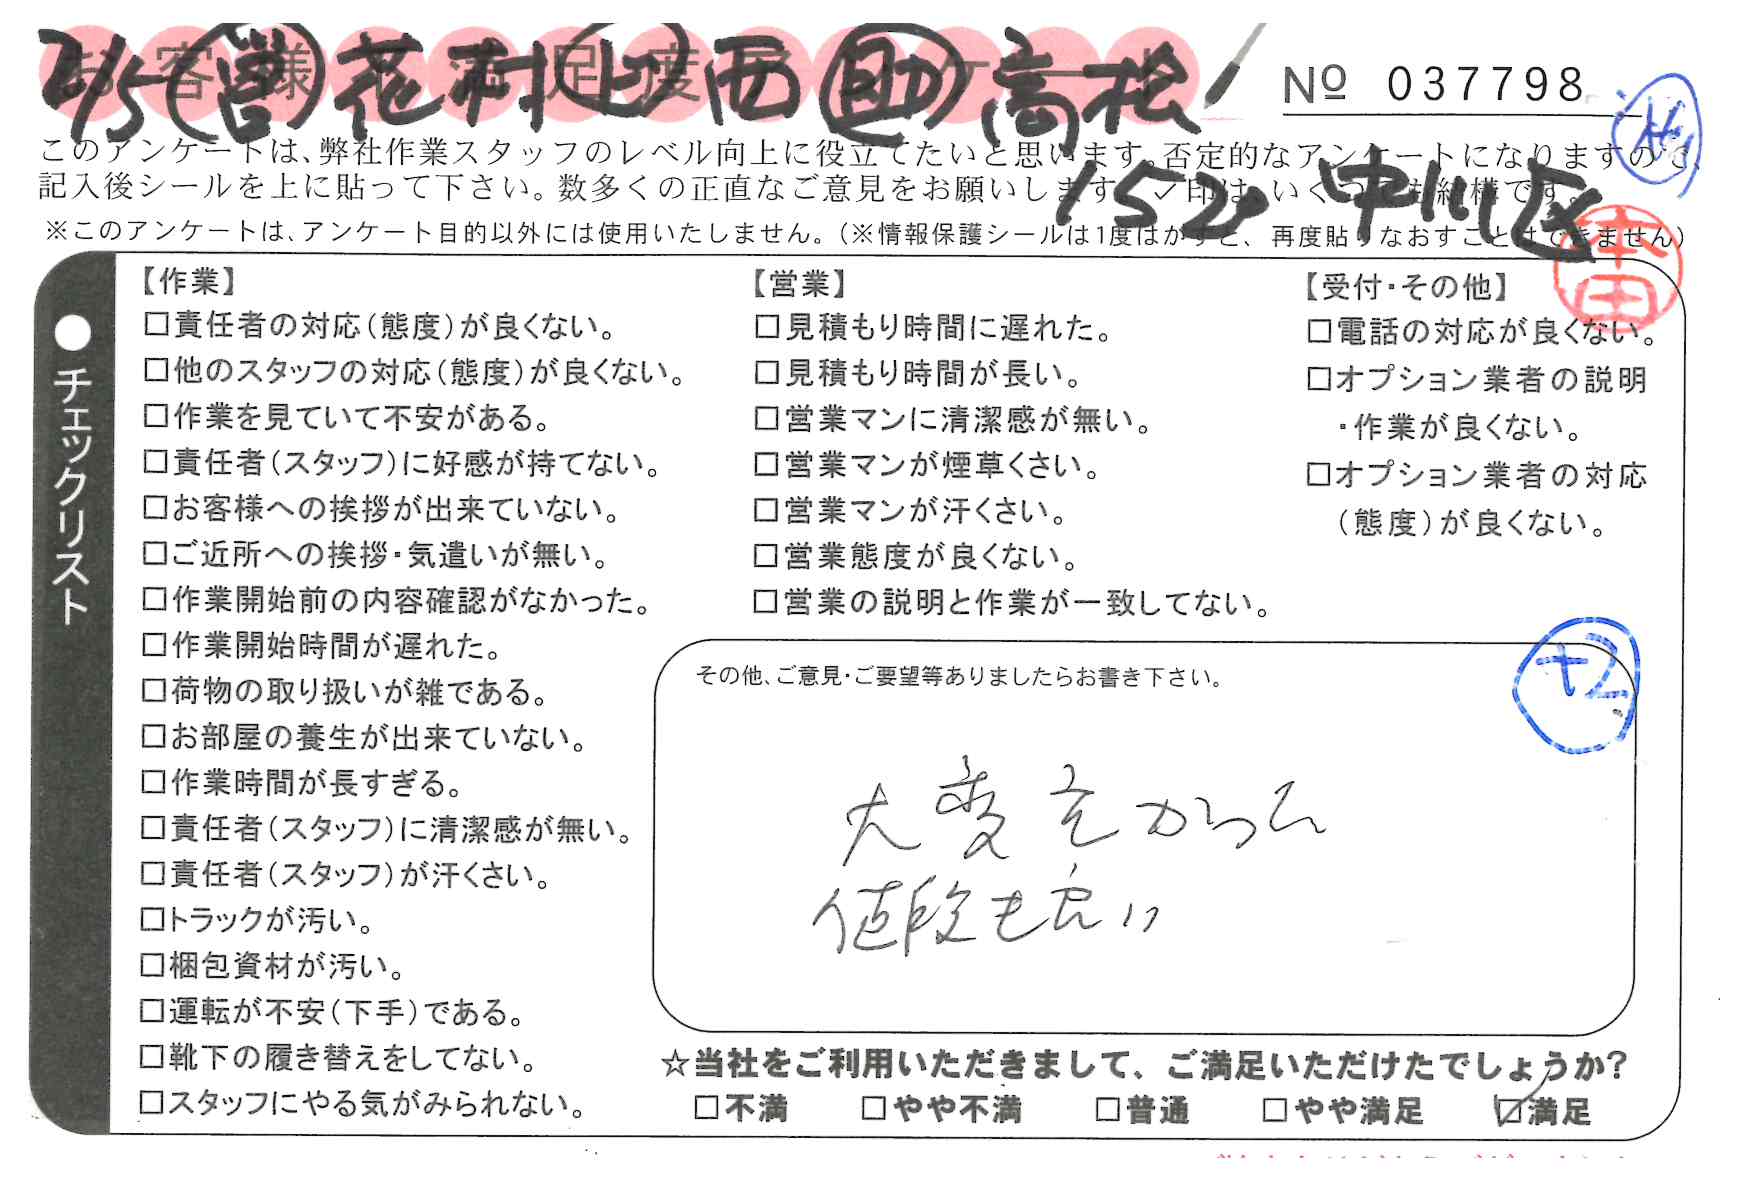 お客様満足度アンケート
7/5 営 花村 上 西 助 高松
Nº 037798
このアンケートは、弊社作業スタッフのレベル向上に役立てたいと思います。否定的なアンケートになりますので、
記入後シールを上に貼って下さい。数多くの正直なご意見をお願いします。✓印は、いくつでも結構です。
152 中川区
※このアンケートは、アンケート目的以外には使用いたしません。(※情報保護シールは1度はがすと、再度貼りなおすことはできません)
本田
●チェックリスト
【作業】
□責任者の対応(態度)が良くない。
□他のスタッフの対応(態度)が良くない。
□作業を見ていて不安がある。
□責任者(スタッフ)に好感が持てない。
□お客様への挨拶が出来ていない。
□ご近所への挨拶・気遣いが無い。
□作業開始前の内容確認がなかった。
□作業開始時間が遅れた。
□荷物の取り扱いが雑である。
□お部屋の養生が出来ていない。
□作業時間が長すぎる。
□責任者(スタッフ)に清潔感が無い。
□責任者(スタッフ)が汗くさい。
□トラックが汚い。
□梱包資材が汚い。
□運転が不安(下手)である。
□靴下の履き替えをしてない。
□スタッフにやる気がみられない。
【営業】
□見積もり時間に遅れた。
□見積もり時間が長い。
□営業マンに清潔感が無い。
□営業マンが煙草くさい。
□営業マンが汗くさい。
□営業態度が良くない。
□営業の説明と作業が一致してない。
【受付・その他】
□電話の対応が良くない。
□オプション業者の説明
・作業が良くない。
□オプション業者の対応
(態度)が良くない。
その他、ご意見・ご要望等ありましたらお書き下さい。
大変良かった
値段も良い
☆当社をご利用いただきまして、ご満足いただけたでしょうか?
□不満 □やや不満 □普通 □やや満足 ☑満足